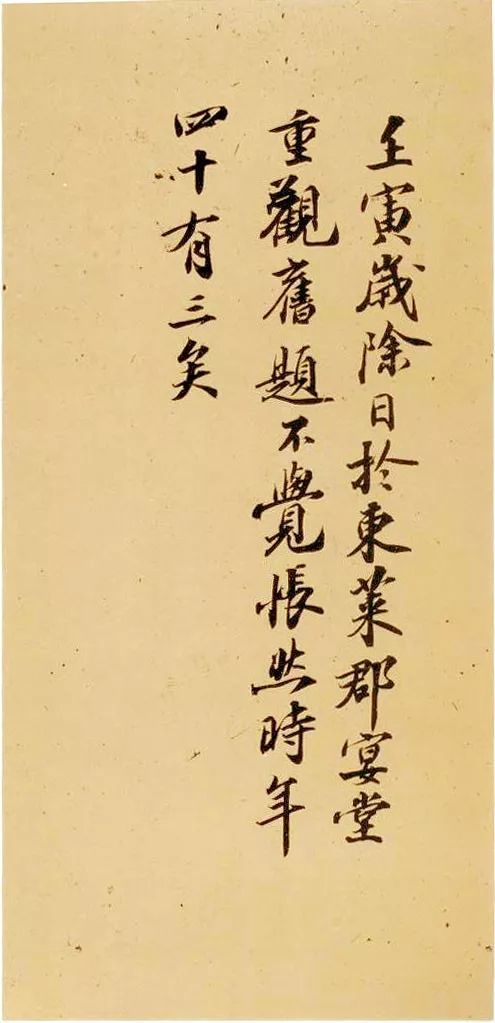 壬寅歲除日於東萊郡宴堂
重觀舊題不覺悵然時年
四十有三矣